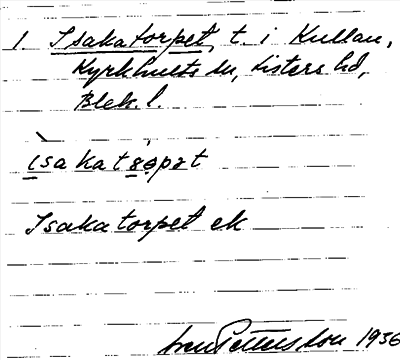 1. Isakatorpet, t. i Kullan,
Kyrkhults sn, Listers hd,
Blek. l.
ìsakatsɵpət
Isakatorpet ek
Pettersson 1936